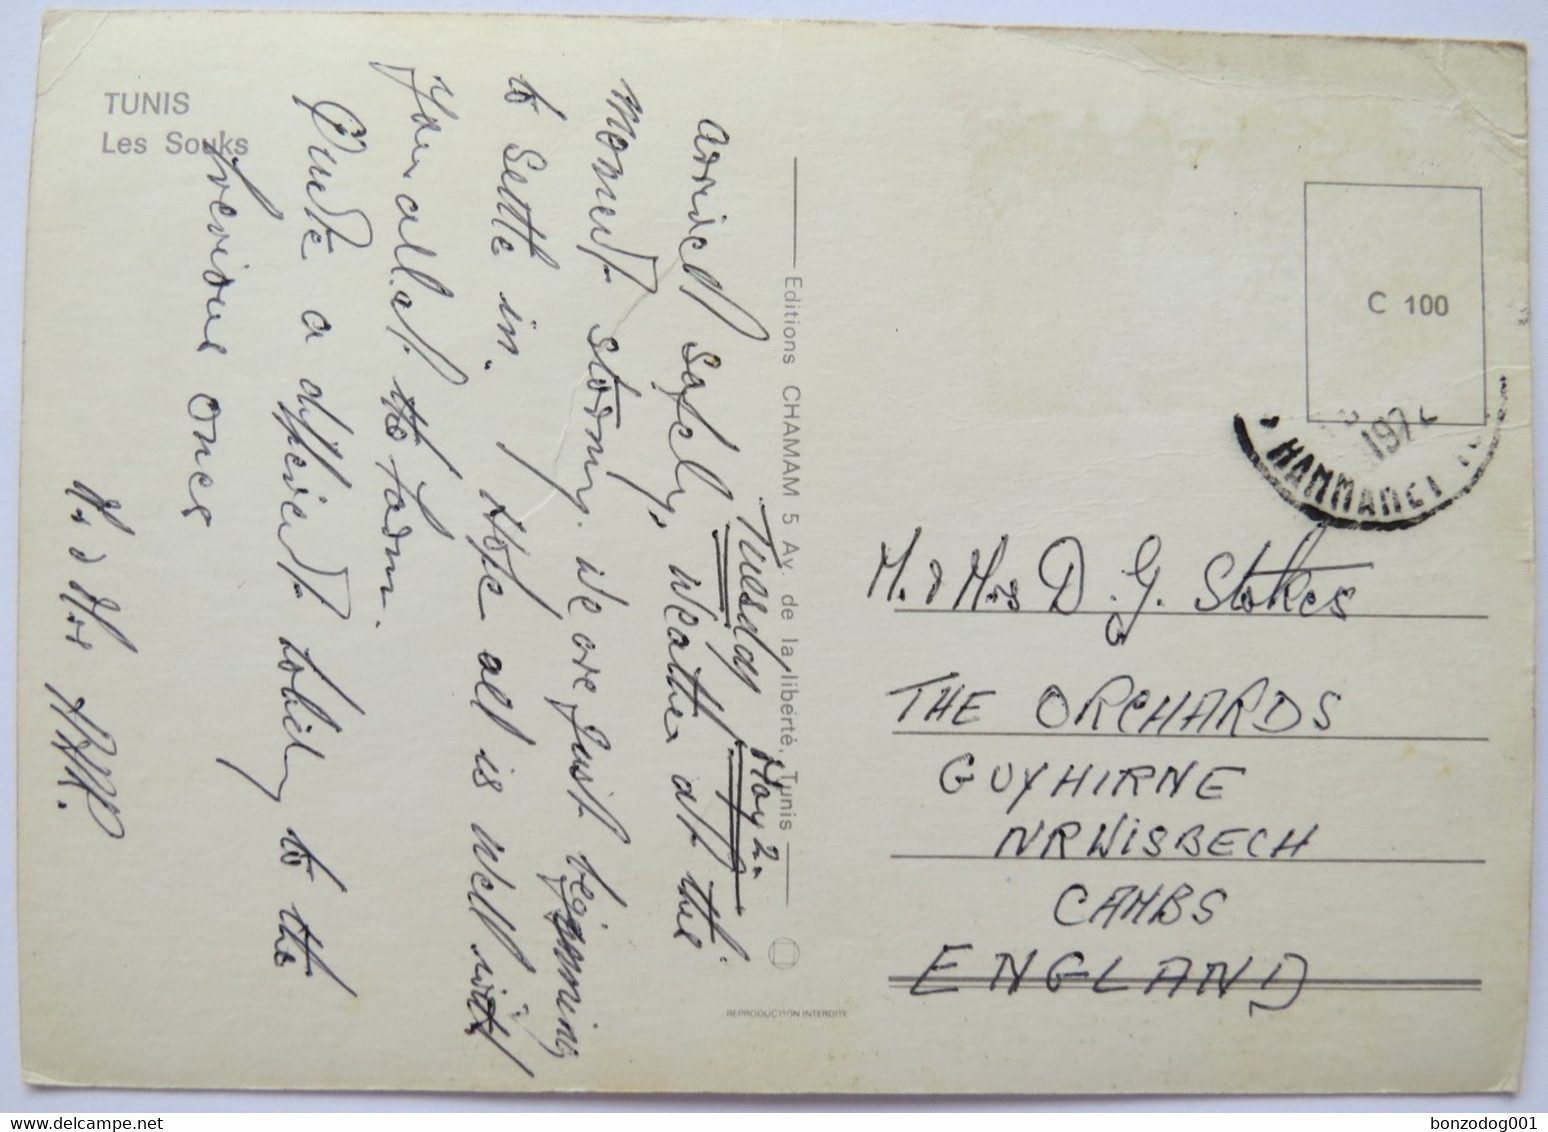 TUNIS
Les Souks
Tuesday
May 2
arrived safely, weather at the
moment stormy. We are just beginning
to settle in. Hope all is well with
you all at the farm.
Quite a different holiday to the
previous ones
Mr & Mrs
Editions CHAMAM 5 Av. de la liberté, Tunis
REPRODUCTION INTERDITE
C 100
1972
HAMMAMET
M. & Mrs D. G. Stokes
THE ORCHARDS
GUYHIRNE
NR WISBECH
CAMBS
ENGLAND
bonzodog001